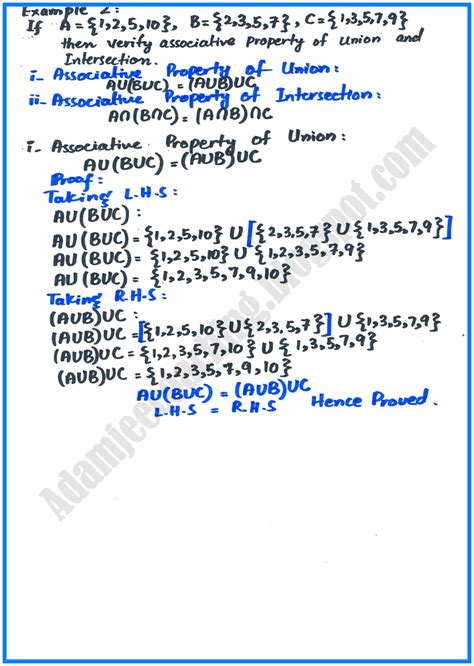 Example 2:
If A = {1,2,5,10}, B = {2,3,5,7}, C = {1,3,5,7,9}
then verify associative Property of Union and
Intersection.
i- Associative Property of Union:
AU(BUC) = (AUB)UC
ii- Associative Property of Intersection:
A∩(B∩C) = (A∩B)∩C
i- Associative Property of Union:
AU(BUC) = (AUB)UC
Proof:
Taking L.H.S:
AU(BUC):
AU(BUC) = {1,2,5,10} U [{2,3,5,7} U {1,3,5,7,9}]
AU(BUC) = {1,2,5,10} U {1,2,3,5,7,9}
AU(BUC) = {1,2,3,5,7,9,10}
Taking R.H.S:
(AUB)UC:
(AUB)UC = [{1,2,5,10} U {2,3,5,7}] U {1,3,5,7,9}
(AUB)UC = {1,2,3,5,7,10} U {1,3,5,7,9}
(AUB)UC = {1,2,3,5,7,9,10}
AU(BUC) = (AUB)UC
L.H.S = R.H.S Hence Proved.
Adamjeecoaching.blogspot.com